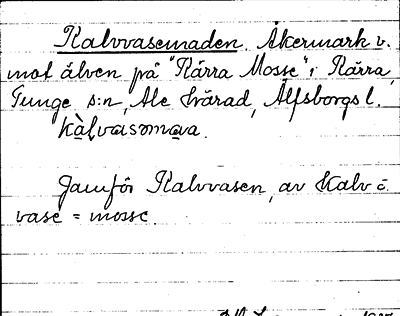 Kalvvasemaden. Åkermark v.
mot älven på "Kärra Mosse" i Kärra,
Tunge s:n, Ale härad, Älfsborgs l.
kàlvasomava.
Jämför Kalvvasen, av Kalv o.
vase = mosse.